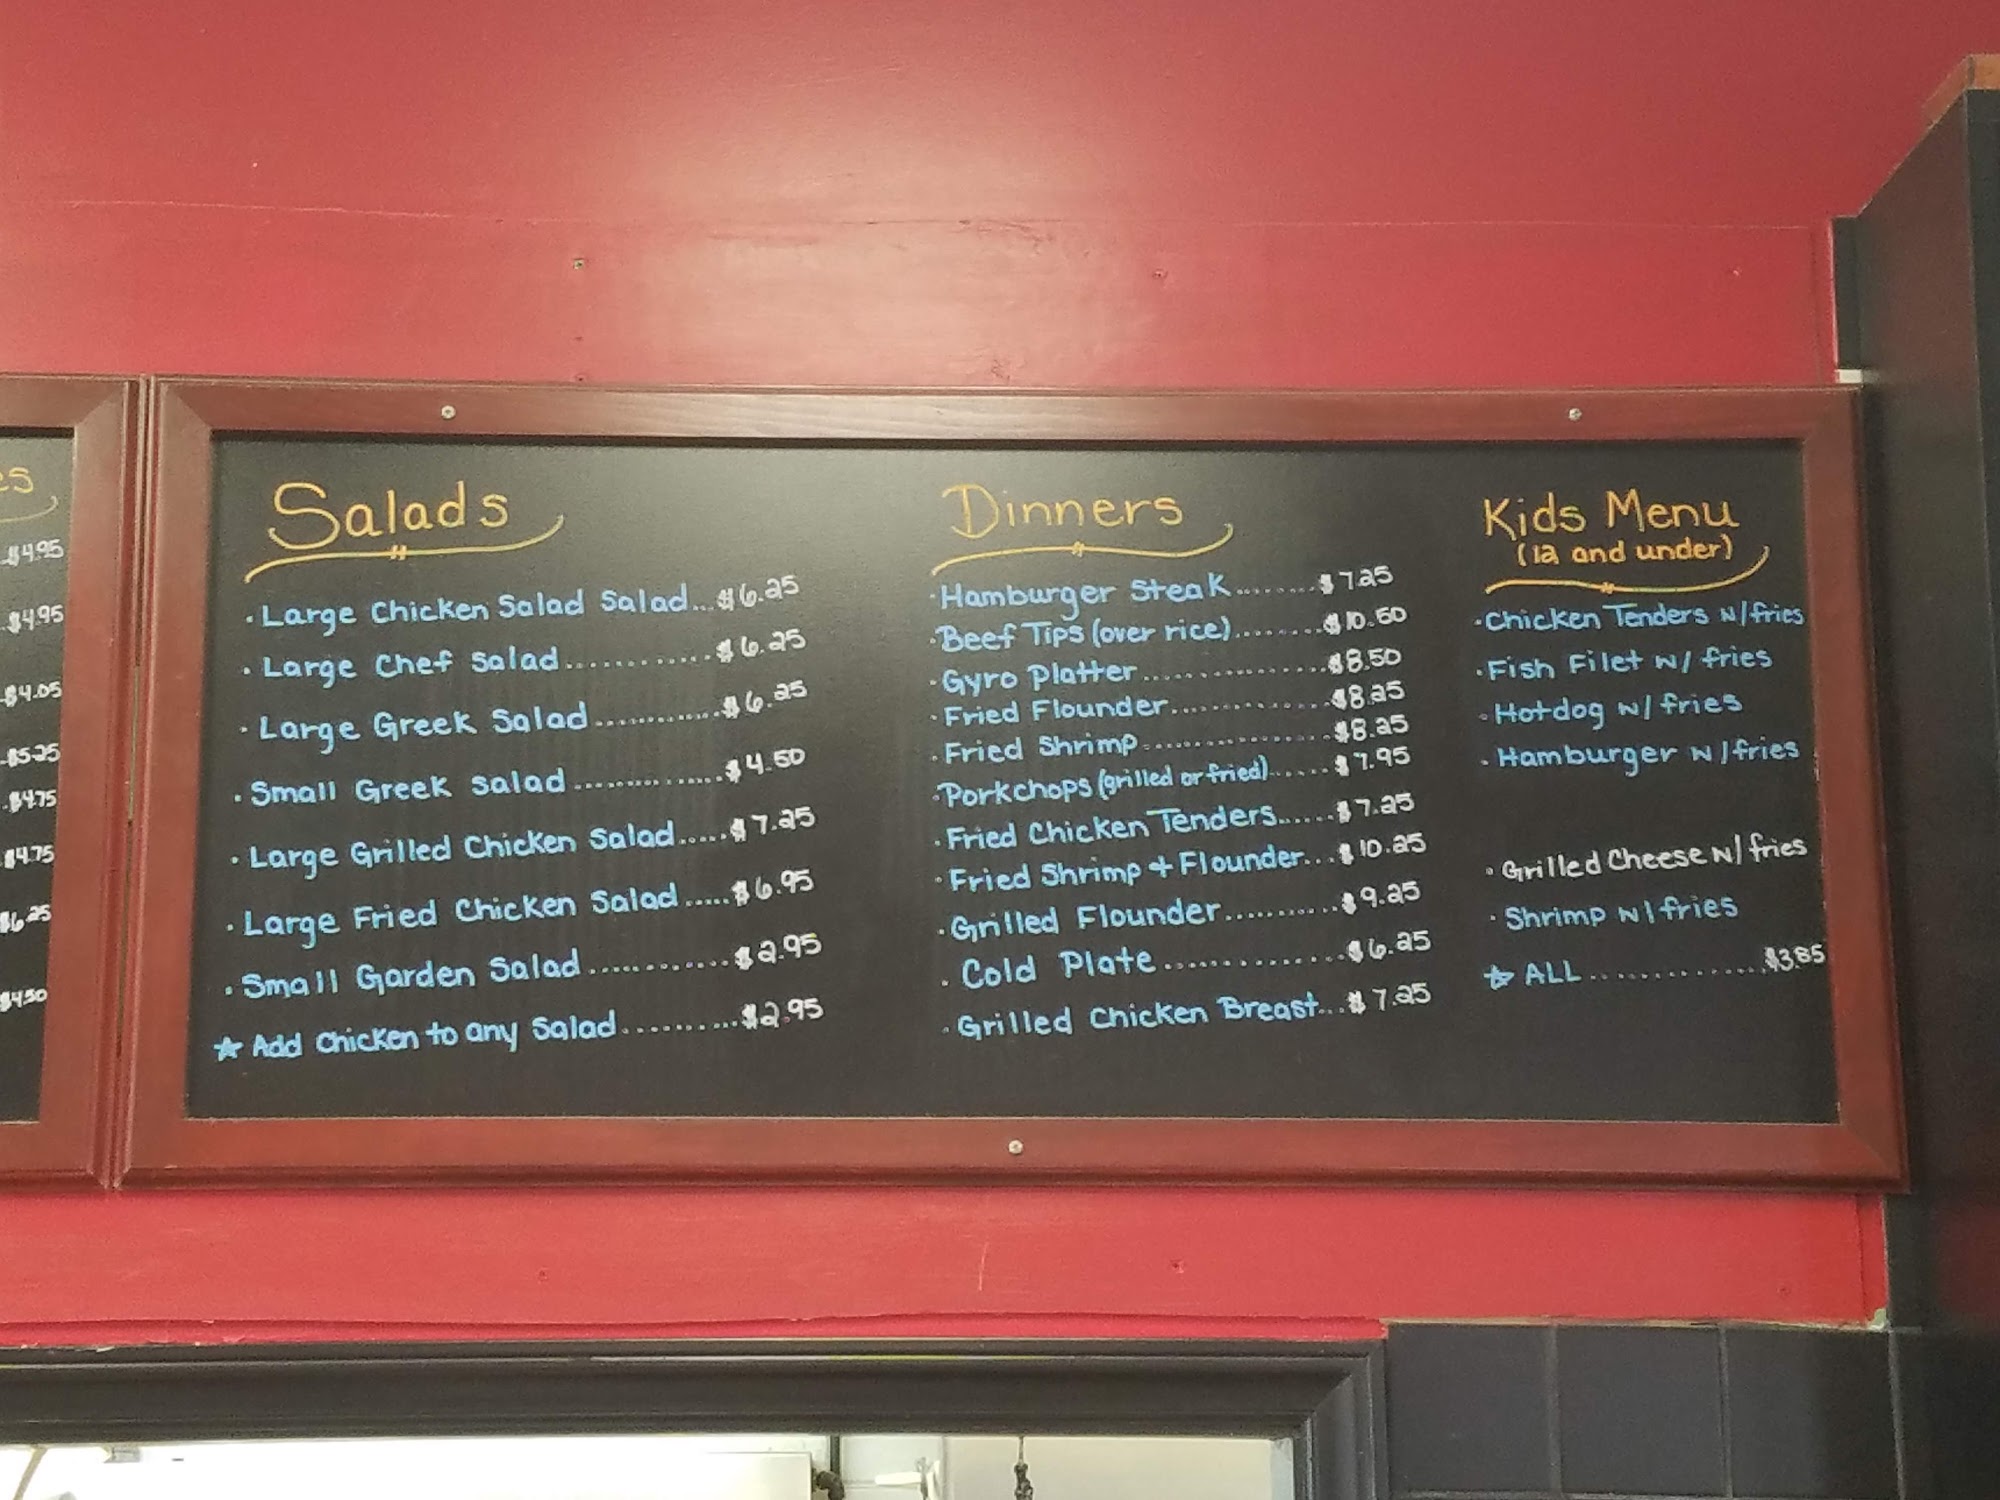 es
$4.95
$4.95
$4.05
$5.25
$4.75
$4.75
$6.25
$4.50
Salads
· Large Chicken Salad Salad...$6.25
· Large Chef Salad............$6.25
· Large Greek Salad.............$6.25
· Small Greek Salad...............$4.50
· Large Grilled Chicken Salad.....$7.25
· Large Fried Chicken Salad.....$6.95
· Small Garden Salad.............$2.95
☆ Add Chicken to any Salad...........$2.95
Dinners
· Hamburger Steak........$7.25
· Beef Tips (over rice)........$10.50
· Gyro Platter..............$8.50
· Fried Flounder..............$8.25
· Fried Shrimp................$8.25
· Porkchops (grilled or fried)......$7.95
· Fried Chicken Tenders......$7.25
· Fried Shrimp + Flounder...$10.25
· Grilled Flounder...........$9.25
· Cold Plate.............$6.25
· Grilled Chicken Breast...$7.25
Kids Menu
(12 and under)
· Chicken Tenders w/fries
· Fish Filet w/ fries
· Hotdog w/ fries
· Hamburger w/fries
· Grilled Cheese w/ fries
· Shrimp w/fries
☆ ALL.............$3.85